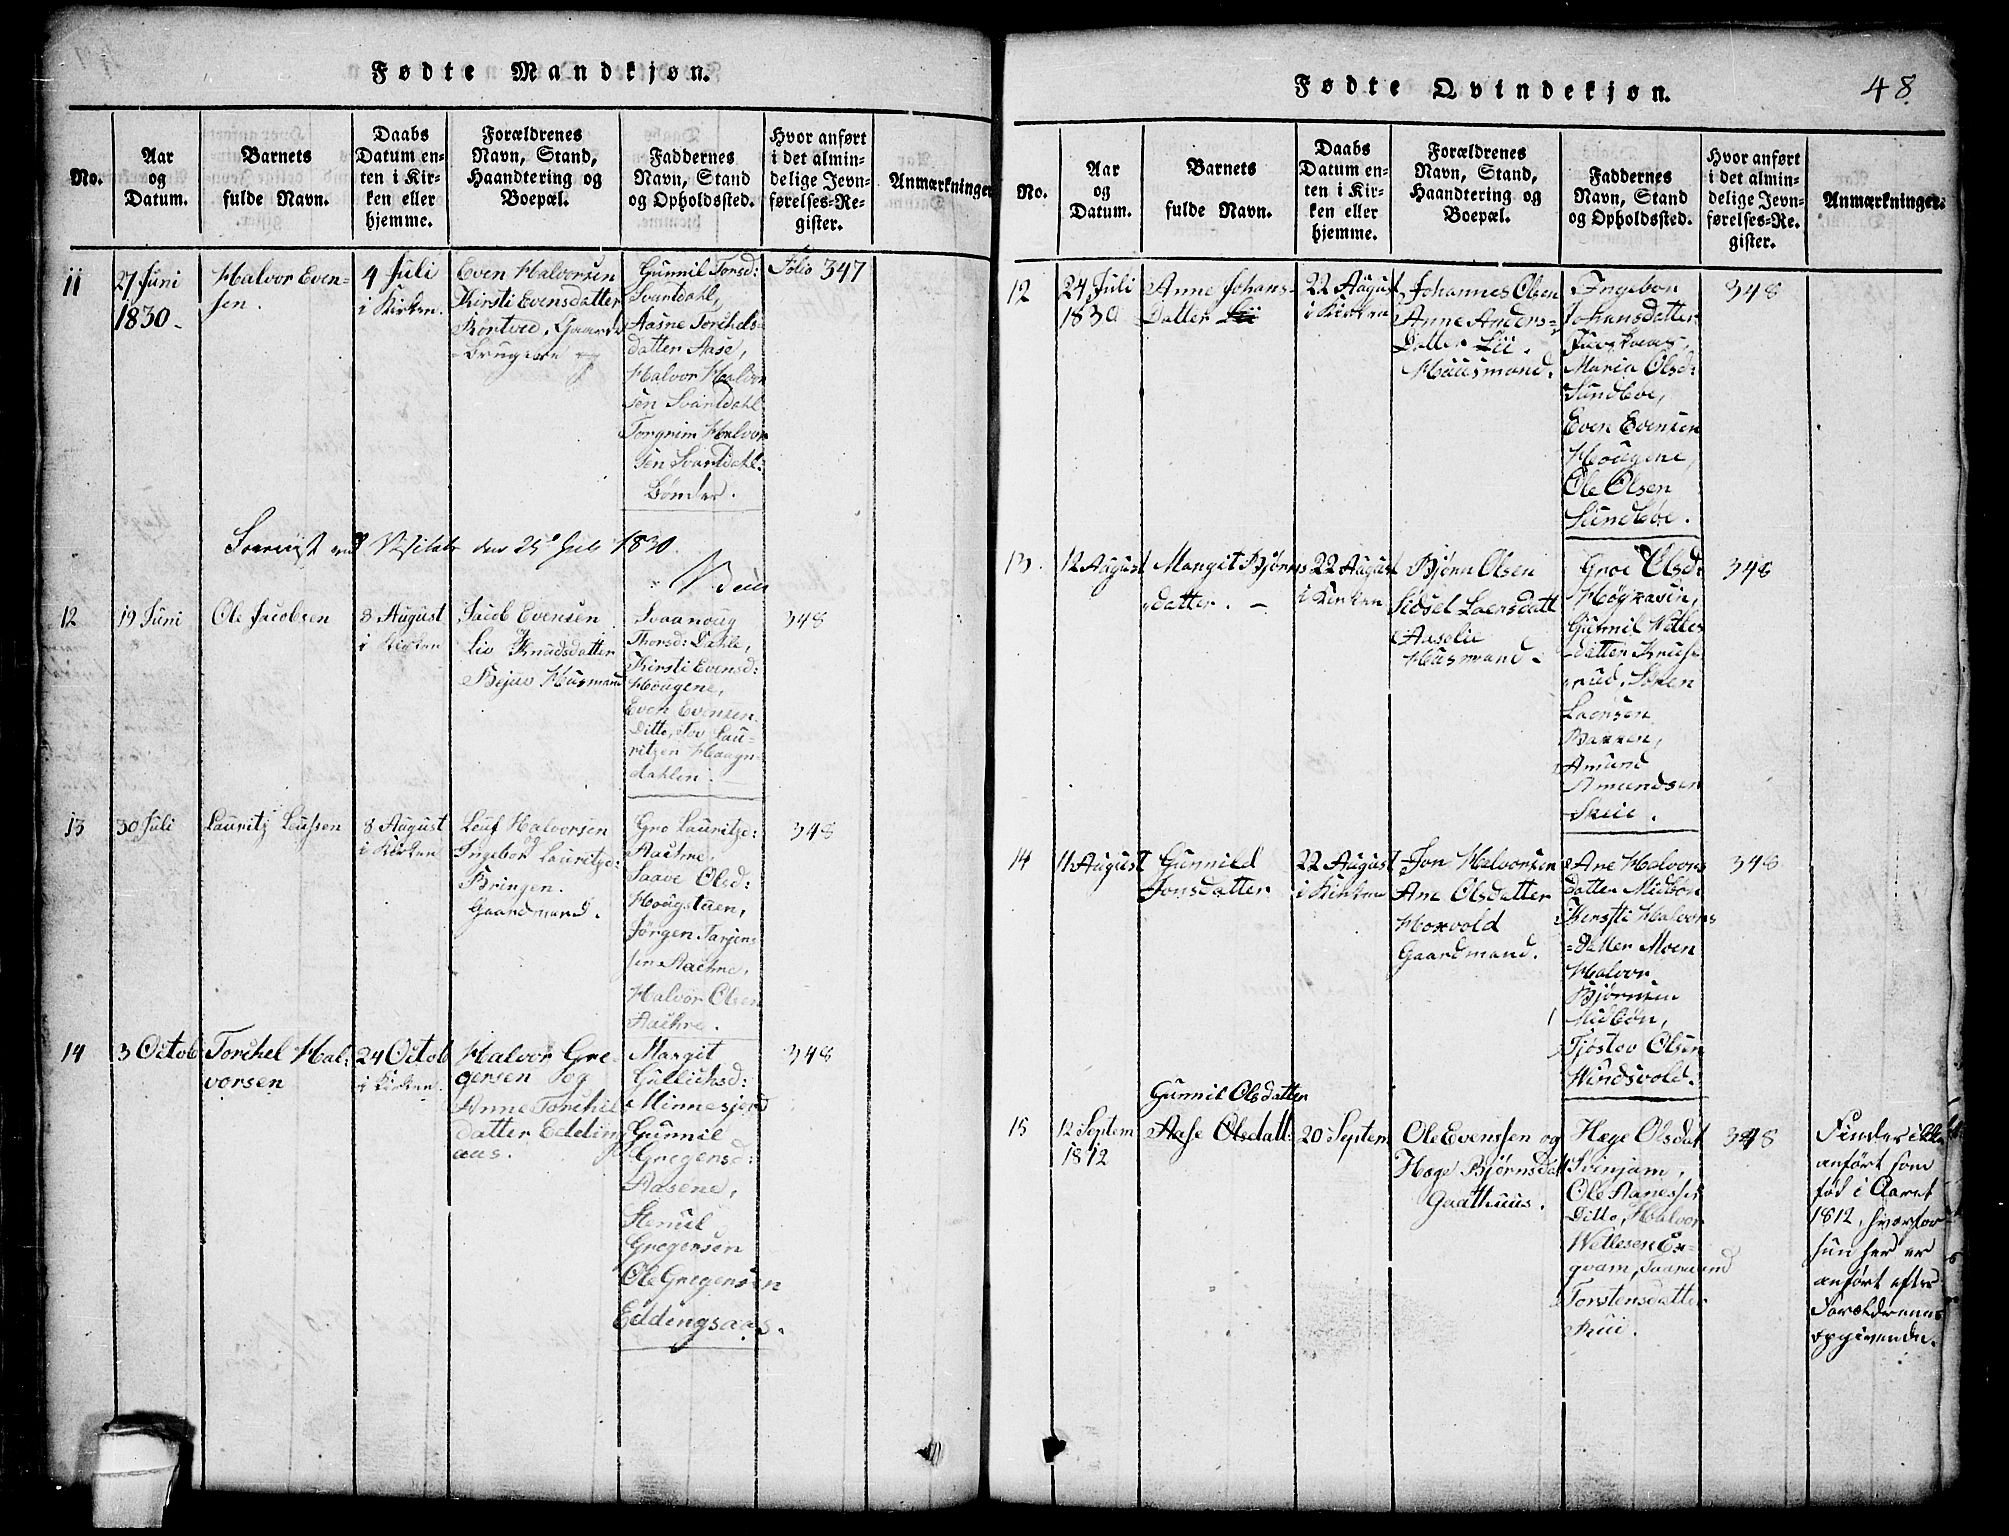 Fødte Mandkjøn.
No.
Aar
og
Datum.
Barnets
fulde Navn.
Daabs
Datum en-
ten i Kir-
ken eller
hjemme.
Forældrenes
Navn, Stand,
Haandtering og
Boepæl.
Faddernes
Navn, Stand
og Opholdssted.
Hvor anført
i det almin-
delige Jevn-
førelses-Re-
gister.
Anmærkninger.
11
27 Juni
1830.
Halvor Even-
sen.
4 Juli
i Kirken.
Even Halvorsen
Kirsti Evensdatter
Rørtved, Gaard-
bruger
Gunnil Torsd:
Svartdahl,
Aasne Torchels-
datter Aase,
Halvor Halvor
sen Svartdahl
Torgrim Halvor
sen Svartdahl.
Bønder.
Folio 347
Foreviist ved Visitats den 25 Juli 1830.
12
19 Juni
Ole Jacobsen
8 August
i Kirken
Jacob Evensen
og
Liv Knudsdatter
Bejuv Husmand
Svanaug
Thorsd: Dahle,
Kirsti Evensd:
Hougene,
Even Evensen
Ditto, Tov Lau-
ritzen Haagn-
dahlen.
348
13
30 Juli
Lauritz Leufsen
8 August
i Kirken
Leuf Halvorsen
og
Ingebor Lauritzd:
Bringen.
Gaardmand.
Gro Lauritzd:
Aachre,
Saave Olsd:
Hougstuen,
Jörgen Tarjen-
sen Aachre,
Halvor Olsen
Aachre.
348
14
3 Octob
Torchel Hal-
vorsen
24 Octob
i Kirken.
Halvor Gre-
gersen og
Anne Torchil
datter Edding
aas.
Margit
Gullichsd:
Minnesjord
Gunnil
Gregersd:
Aasene,
Stenul
Gregersen
Ole Gregersen
Eddingsaas.
348
Fødte Qvindekjøn.
48.
No.
Aar
og
Datum.
Barnets
fulde Navn.
Daabs
Datum en-
ten i Kir-
ken eller
hjemme.
Forældrenes
Navn, Stand,
Haandtering og
Boepæl.
Faddernes
Navn, Stand
og Opholdssted.
Hvor anført
i det almin-
delige Jevn-
førelses-Re-
gister.
Anmærkninger.
12
24 Juli
1830
Anne Johans-
Datter Lii
22 August
i Kirken
Johannes Olsen
Anne Anders-
Datter Lii.
Huusmand.
Ingebor
Johansdatter
Maria Olsd:
Sundboe,
Even Evensen
Hougene,
Ole Olsen
Sundbøe.
348
13.
12 August
Margit Bjørns
datter.
22 August
i Kirken
Bjørn Olsen
Sidsel Laersdatt
Aaselie
Husmand.
Groe Olsd:
Høgravin,
Gunnil Wetles
datter Kriese
rud, Steen
Laersen
Bakken,
Amund
Amundsen
Skui.
348
14
11 August
Gunnild
Jonsdatter
22 August
i Kirken
Jon Halvorsen
Ane Olsdatter
Horvold
Gaardmand.
Ane Halvors
datter Midbøn
Kirstie Halvors
Datter Moen
Halvor
Bjørnsen
Midbøn,
Tjøstov Olsen
Windsvold.
348
15
12 Septem
1812
Gunnil Olsdatter
Aase Olsdatt:
20 Septem
Ole Evenssen og
Hæge Bjørnsdatt
Gaathuus.
Hæge Olsdat
Svinjom,
Ole Aanessen
Ditto, Halvor
Wetlesen Ex-
qvam, Saamund
Torstensdatter
Skui.
348
Findes ikke
anført som
fød i Aaret
1812, hvorfor
hun her er
anført efter
Forældrenes
opgivende.